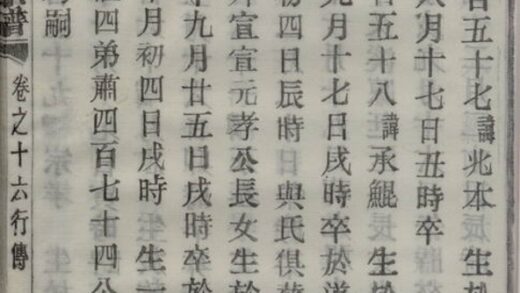 百五十七諱兆本 生
八月十七日丑時卒
百五十八諱承鯤 生於
月十七日戌時卒於道
初四日辰時 與氏俱葬
宣宣元孝公長女生於
年九月廿五日戌時卒於
月初四日戌時 生一
四弟肅四百七十四公
嗣
譜 卷之十六行傳